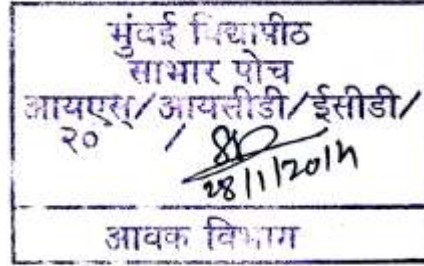 मुंबई विद्यापीठ
साभार पोच
आयएस्/आयसीडी/ईसीडी/
२० /
28/1/2014
आवक विभाग